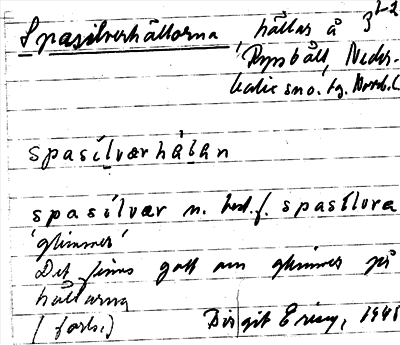 Spasilverhällorna, hällar å 3¹⁻²
Rynbäll, Neder-
kalix sn o. tg. Norrb. l.
spasílværhä́lan
spasílvær n. best. f. spasílvra
'glimmer'
Det finns gott om glimmer på
hällarna
(forts.) Birgit Ericy, 1948